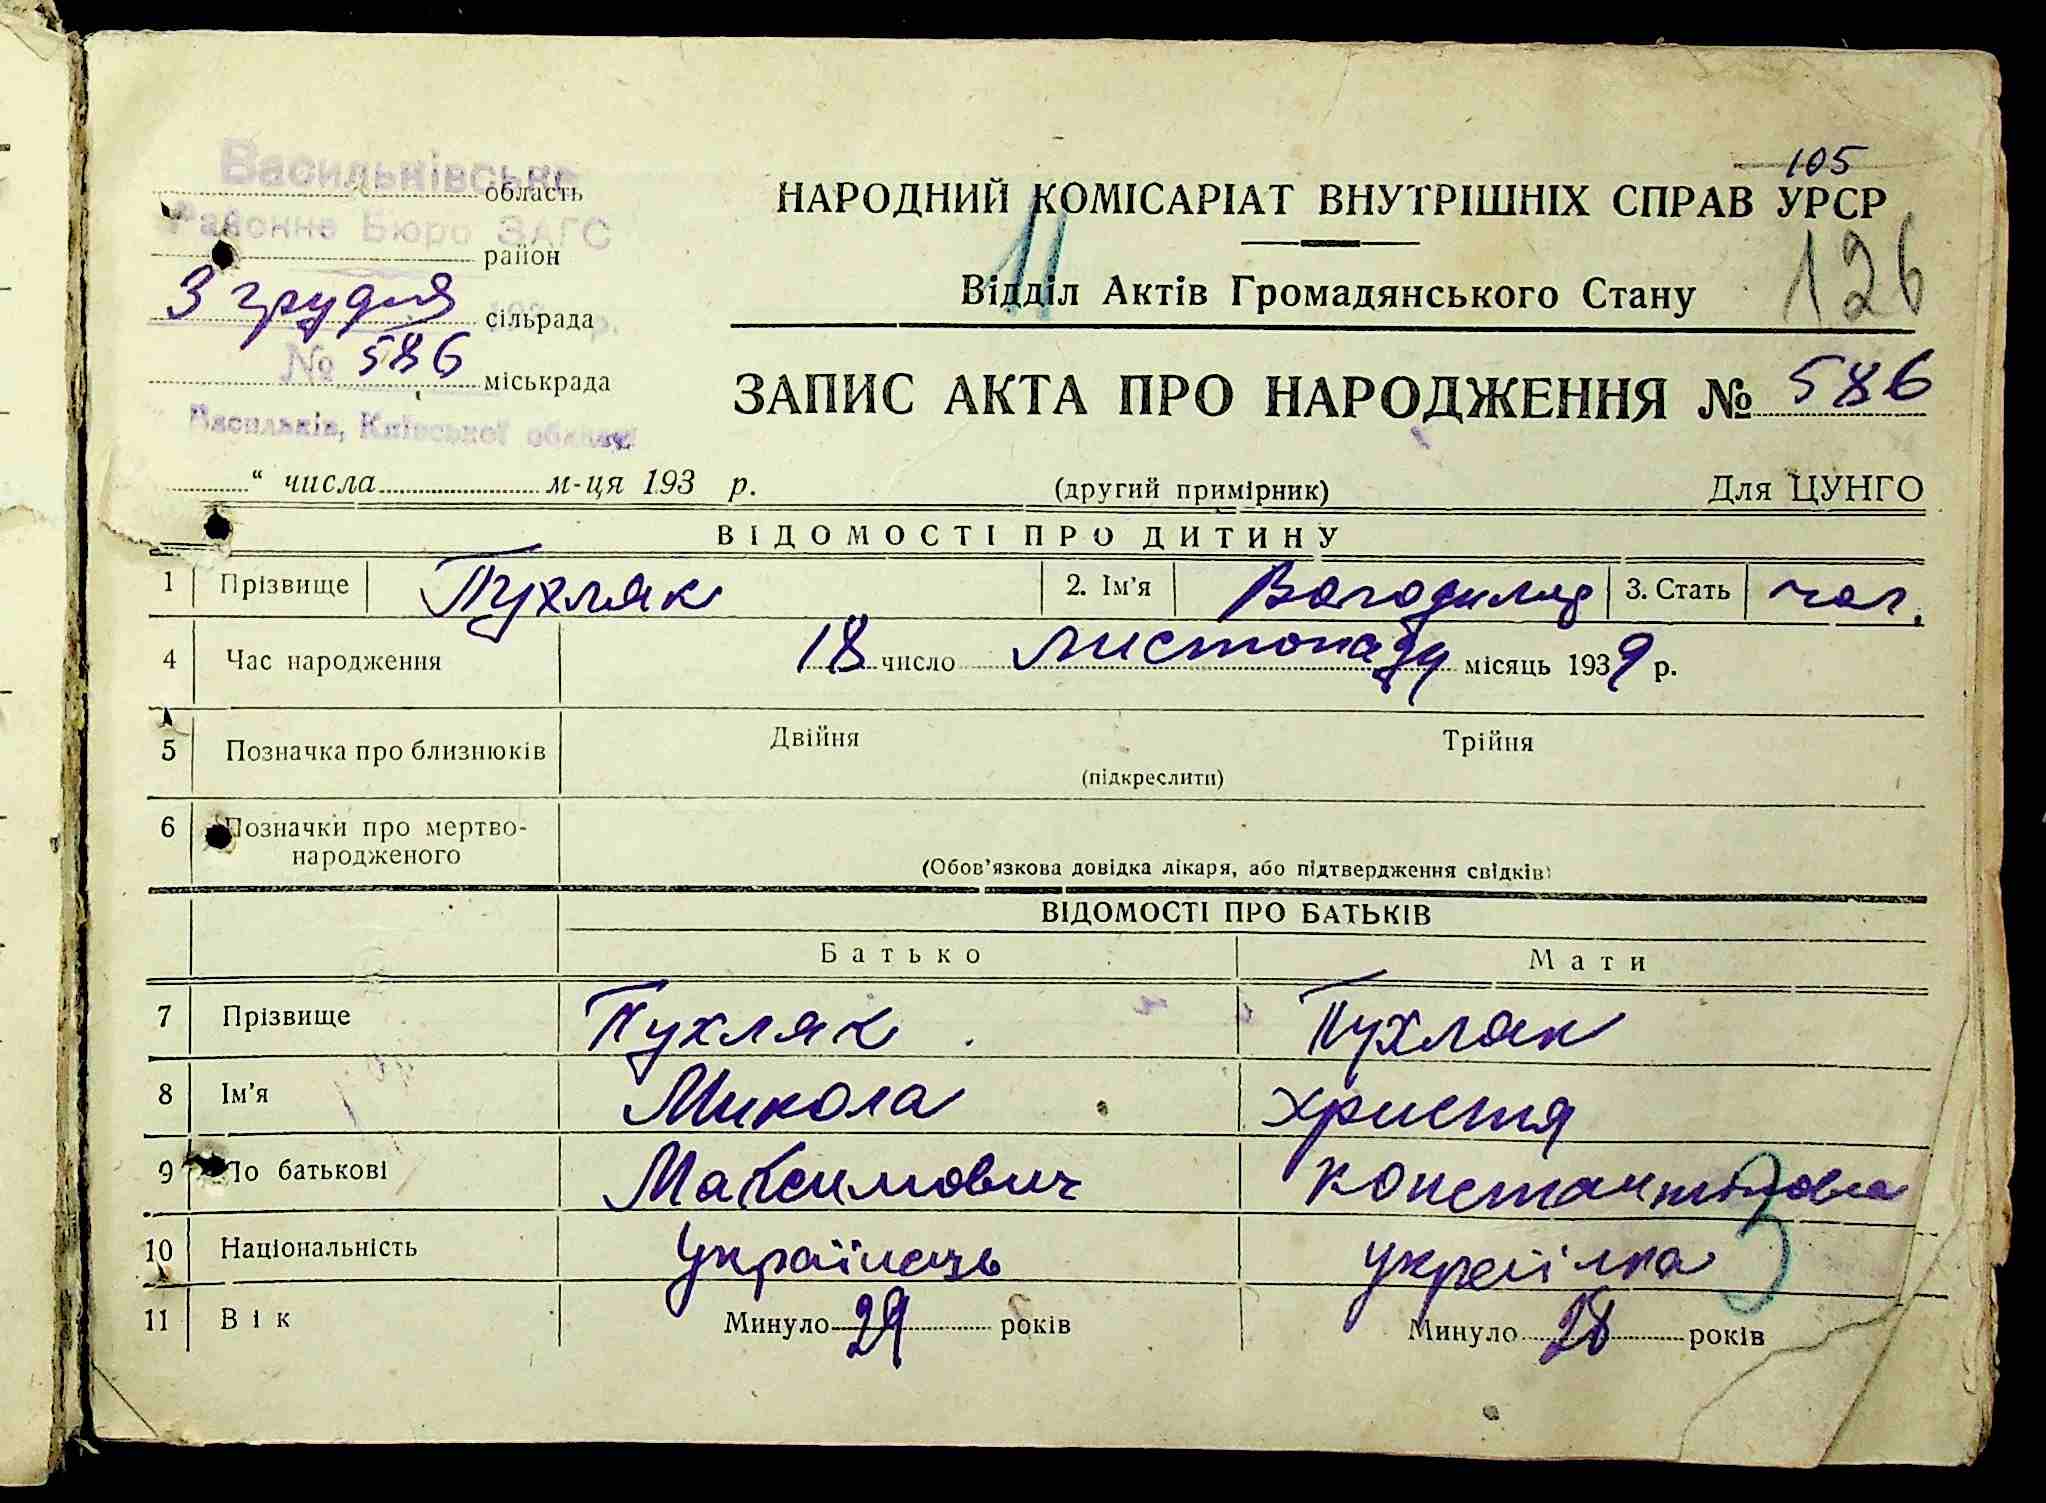 105
Васильківське
область
НАРОДНИЙ КОМІСАРІАТ ВНУТРІШНІХ СПРАВ УРСР
Районне Бюро ЗАГС
район
11
126
3 грудня сільрада
Відділ Актів Громадянського Стану
№ 586 міськрада
ЗАПИС АКТА ПРО НАРОДЖЕННЯ № 586
Васильків, Київської області
“ числа м-ця 193 р. (другий примірник) Для ЦУНГО
ВІДОМОСТІ ПРО ДИТИНУ
1 Прізвище Пухляк 2. Ім’я Володимир 3. Стать чол.
4 Час народження 18 число листопада місяць 1939 р.
5 Позначка про близнюків Двійня Трійня
(підкреслити)
6 Позначки про мертво-
народженого
(Обов’язкова довідка лікаря, або підтвердження свідків)
ВІДОМОСТІ ПРО БАТЬКІВ
Батько Мати
7 Прізвище Пухляк Пухляк
8 Ім’я Микола Христя
9 По батькові Максимович Константіновна
10 Національність Українець українка
3
11 Вік Минуло 29 років Минуло 28 років